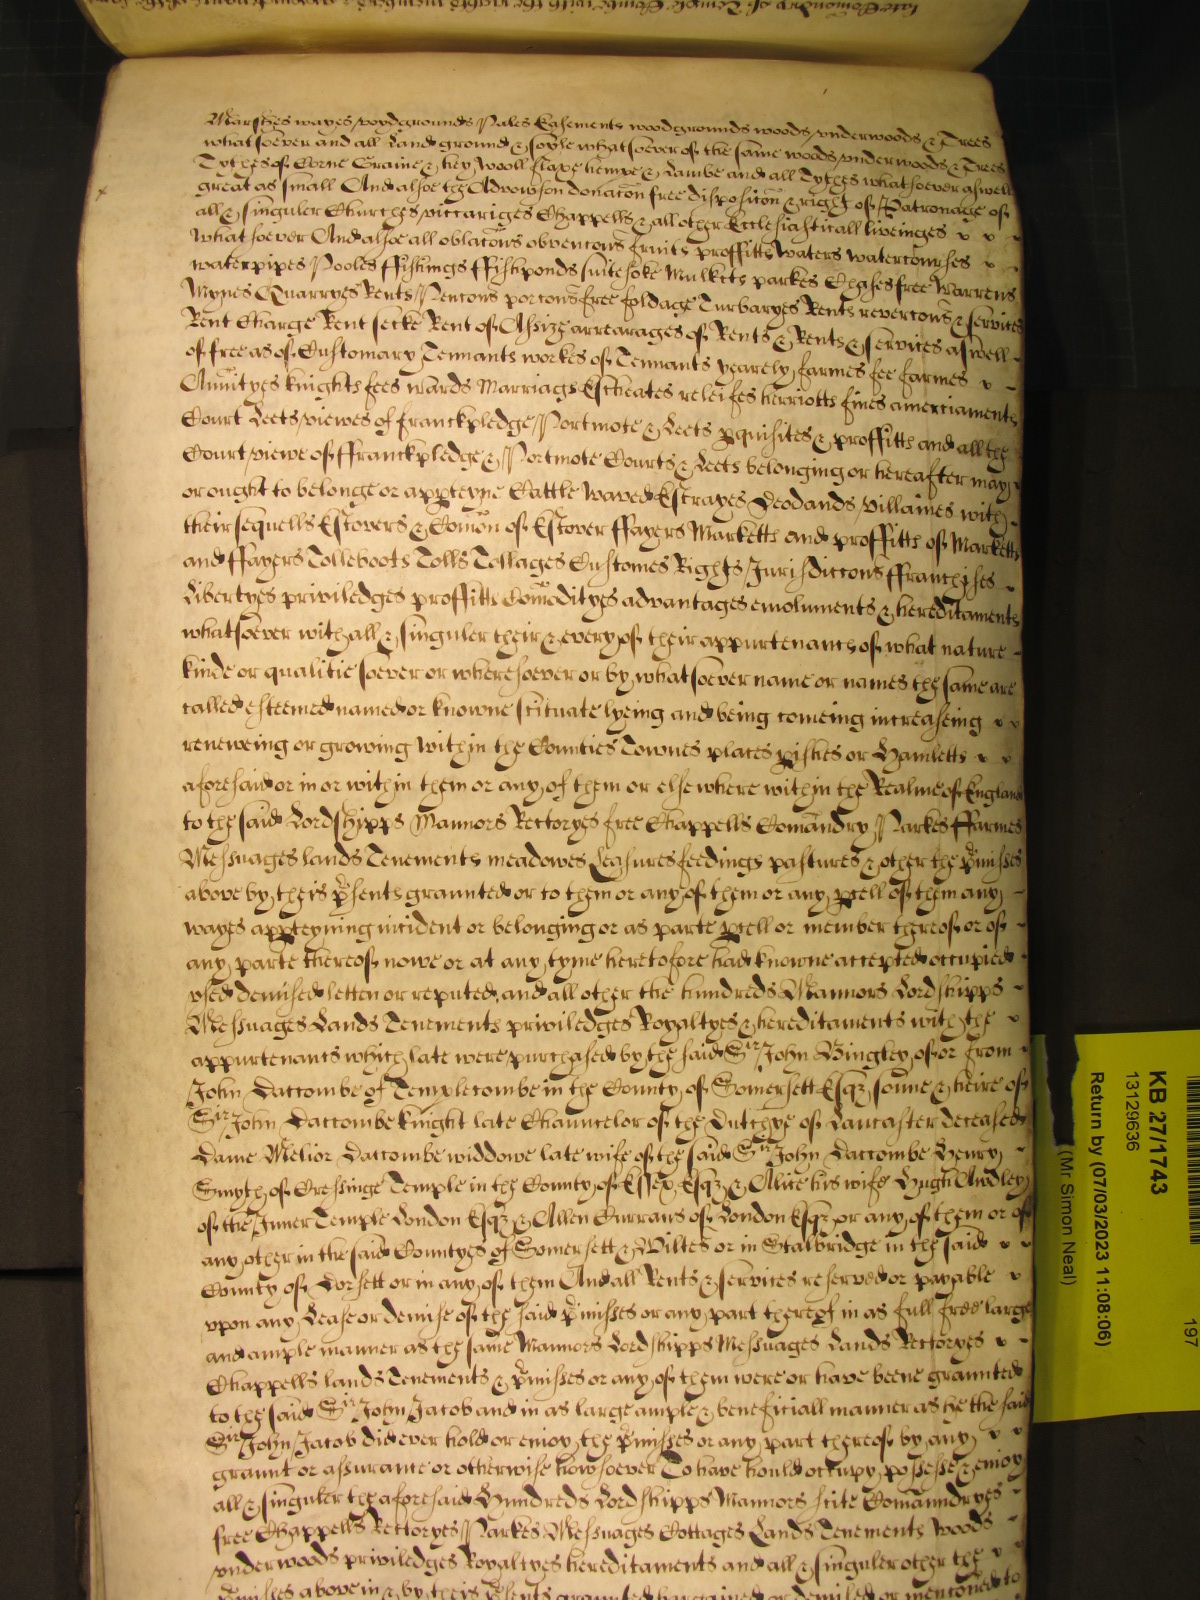 Marshes wayes voydgrounds Pales Easements woodgrounds woods vnderwoods & Trees
whatsoever and all Land ground & soyle whatsoever of the same woods vnderwoods & Trees
Tythes of Corne Graine & hey Wooll flaxe hempe & Lambe and all Tythes whatsoever aswell
great as small And alsoe the Advowson donacōn free disposicōn & right of Patronage of
all & singuler Churches viccariges Chappells & all other Ecclesiasticall liveinges
whatsoever And alsoe all oblacōns obvencōns fruits proffitts Waters watercourses
waterpipes Pooles ffishings ffishponds suite soke Mulkts parkes Chases free Warrens
Mynes Quarryes Rents Pencōns porcōns free foldage Turbaryes Rents revercōns & services
Rent Charge Rent secke Rent of Assize arrearages of Rents & Rents & services aswell
of free as of Customary Tennants workes of Tennants yearely farmes fee farmes
Anuityes knights fees wards Marriags Escheates releifes herriotts fines amerciaments
Court Leets viewes of franckpledge Portmote & Leets pquisites & proffitts and all the
Court viewe of ffranckpledge & Portmote Courts & Leets belonging or hereafter may
or ought to belonge or appteyne Cattle Waved Estrayes Deodands Villaines with
their sequells Estovers & Comōn of Estover ffayers Marketts and proffitts of Marketts
and ffayers Tolleboots Tolls Tollages Customes Rights Jurisdiccons ffranchises
Libertyes priviledges proffitts Comōdityes advantages emoluments & hereditaments
whatsoever with all & singuler their & every of their appurtenancs of what nature
kinde or qualitie soever or wheresoever or by whatsoever name or names the same are
called esteemed named or knowne scituate lyeing and being comeing increaseing
reneweing or growing within the Counties Townes places pishes or Hamletts
aforesaid or in or within them or any of them or elsewhere within the Realme of England
to the said Lordshipps Mannors Rectoryes free Chappells Comāndry Parkes ffarmes
Messuages lands Tenements meadowes Leasures feedings pastures & other the p̄misses
above by theis p̄sents graunted or to them or any of them or any pcell of them any
wayes appteyning incident or belonging or as parte pcell or member thereof or of
any parte thereof nowe or at any tyme heretofore had knowne accepted occupied
vsed demised letten or reputed and all other the hundreds Mannors Lordshipps
Messuages Lands Tenements priviledges Royaltyes & hereditaments with the
appurtenancs which late were purchased by the said Sir John Bingley of or from
John Daccombe of Templecombe in the County of Somersett Esqz sonne & heire of
Sir John Daccombe knight late Chauncelor of the Dutchye of Lancaster deceased
Dame Melior Daccombe widdowe late wife of the said Sir John Daccombe Henry
Smyth of Cressinge Temple in the County of Essex Esqz & Alice his wife Hugh Awdley
of the Inner Temple London Esqz & Allen Currans of London Esqz or any of them or of
any other in the said Countyes of Somersett & Wiltes or in Stalbridge in the said
County of Dorsett or in any of them And all Rents & services reserved or payable
vpon any Lease or demise of the said p̄misses or any part thereof in as full free large
and ample manner as the same Mannors Lordshipps Messuages Lands Rectoryes
Chappells lands Tenements & p̄misses or any of them were or have beene graunted
to the said Sir John Jacob and in as large ample & beneficiall manner as he the said
Sir John Jacob did ever hold or enioy the p̄misses or any part thereof by any
graunt or assurance or otherwise howsoever To have hould occupy possesse & enioy
all & singuler the aforesaid Hundreds Lordshipps Mannors scite Comāundryes
free Chappells Rectoryes Parkes Messuages Cottages Lands Tenements Woods
vnderwoods priviledges Royaltyes hereditaments and all & singuler other the
p̄misses above in & by theis p̄sents graunted bargained or demised or mencōned to
KB 27/1743
13129636
Return by (07/03/2023 11:08:06)
(Mr Simon Neal)
197